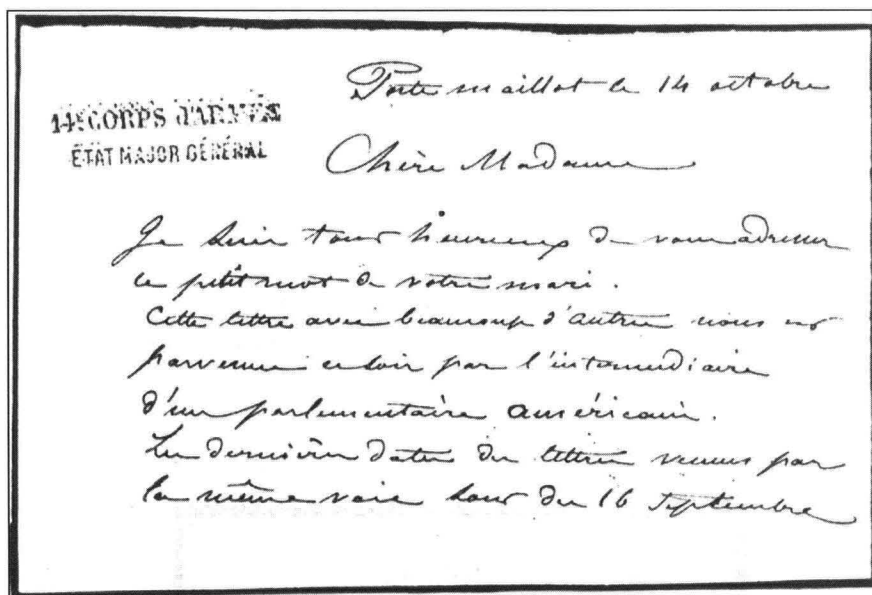 Porte maillot le 14 octobre
14e CORPS d'ARMÉE
ETAT MAJOR GÉNÉRAL
Chère Madame
Je suis tout heureux de vous adresser
ce petit mot de votre mari.
Cette lettre avec beaucoup d'autres nous est
parvenue ce soir par l'intermédiaire
d'un parlementaire américain.
Les dernières dates des lettres venues par
la même voie sont du 16 septembre